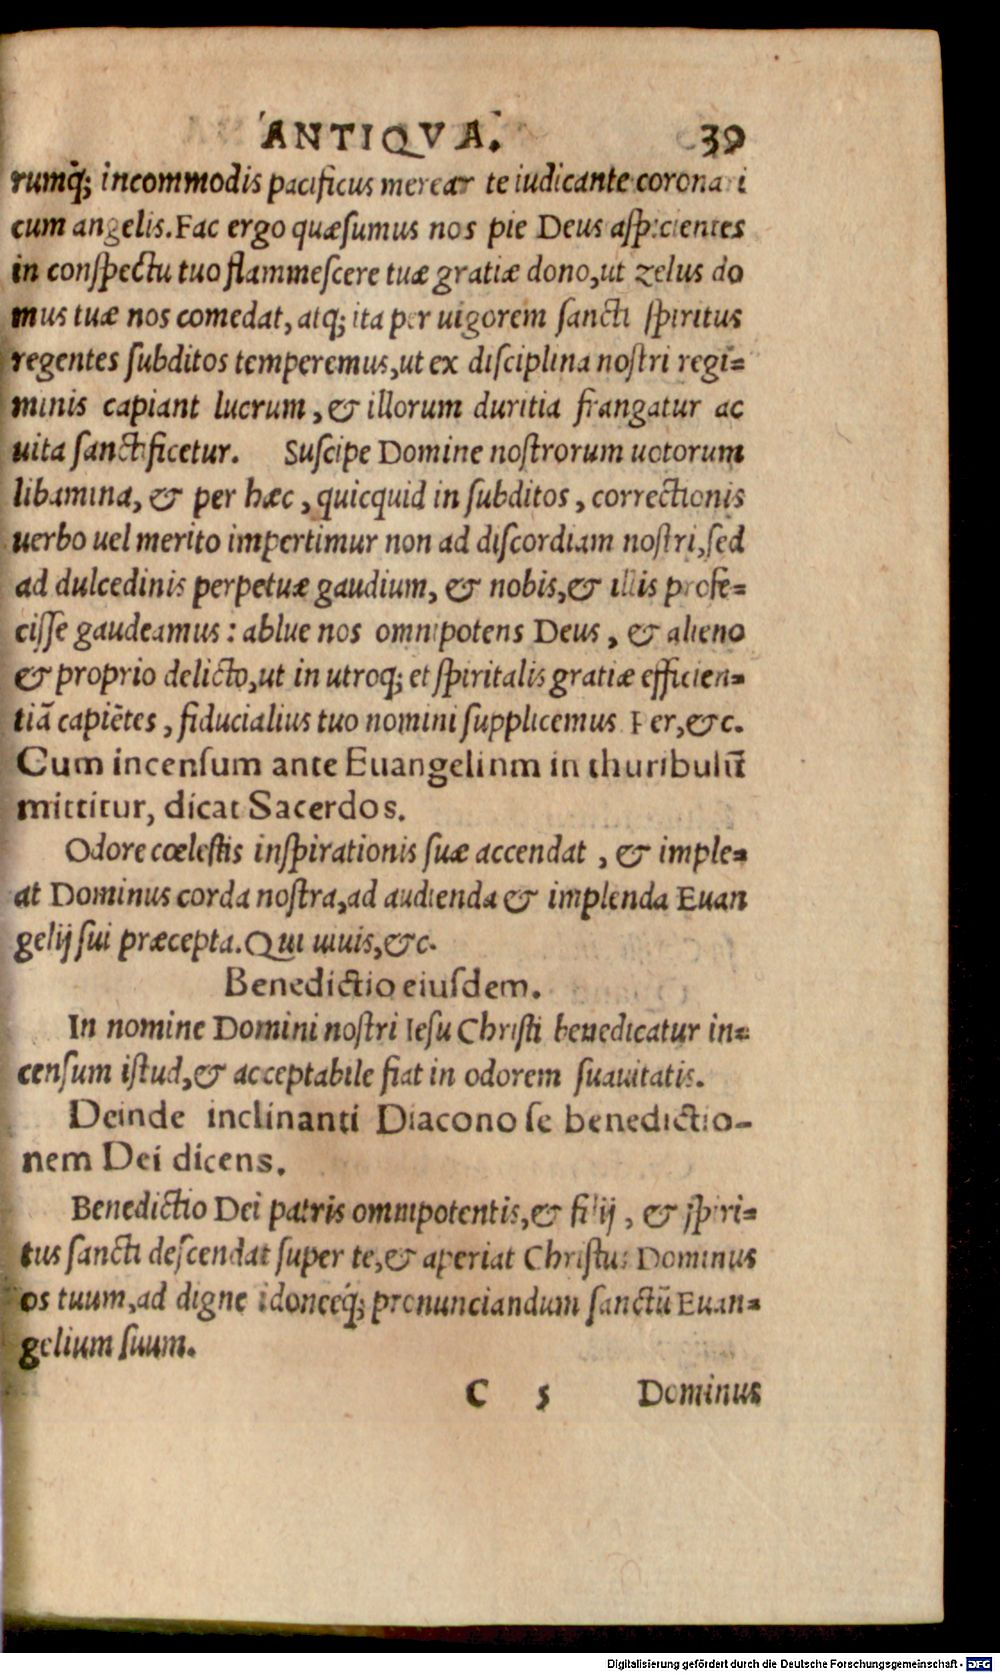 ANTIQVA. 39
rumq́; incommodis pacificus merear te iudicante coronari
cum angelis. Fac ergo quæsumus nos pie Deus aspicientes
in conspectu tuo flammescere tuæ gratiæ dono, ut zelus do
mus tuæ nos comedat, atq; ita per uigorem sancti spiritus
regentes subditos temperemus, ut ex disciplina nostri regi=
minis capiant lucrum, & illorum duritia frangatur ac
uita sanctificetur. Suscipe Domine nostrorum uotorum
libamina, & per hæc, quicquid in subditos, correctionis
uerbo uel merito impertimur non ad discordiam nostri, sed
ad dulcedinis perpetuæ gaudium, & nobis, & illis profe=
cisse gaudeamus: ablue nos omnipotens Deus, & alieno
& proprio delicto, ut in utroq; et spiritalis gratiæ efficien=
tiā capiētes, fiducialius tuo nomini supplicemus Per, &c.
Cum incensum ante Euangelinm in thuribulū
mittitur, dicat Sacerdos.
Odore cœlestis inspirationis suæ accendat, & imple=
at Dominus corda nostra, ad audienda & implenda Euan
gelij sui præcepta. Qui uiuis, &c.
Benedictio eiusdem.
In nomine Domini nostri Iesu Christi benedicatur in=
censum istud, & acceptabile fiat in odorem suauitatis.
Deinde inclinanti Diacono se benedictio-
nem Dei dicens.
Benedictio Dei patris omnipotentis, & filij, & spiri=
tus sancti descendat super te, & aperiat Christus Dominus
os tuum, ad digne idoneeq́; pronunciandum sanctū Euan=
gelium suum.
C 5 Dominus
Digitalisierung gefördert durch die Deutsche Forschungsgemeinschaft - DFG